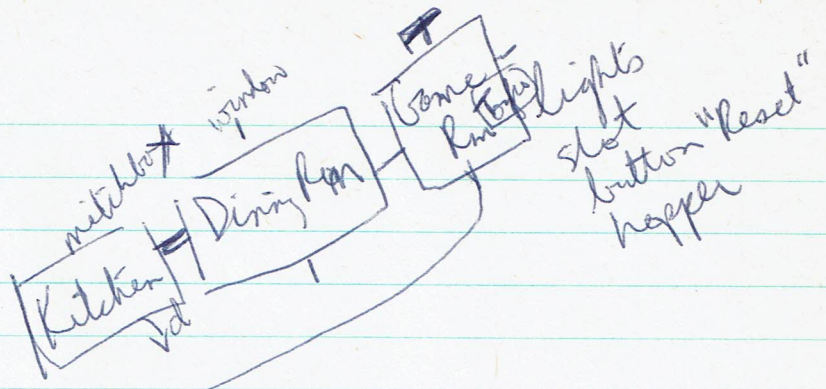 window
Kitchen
Dining Rm
Game
Rm
lights
slot
button "Reset"
hopper